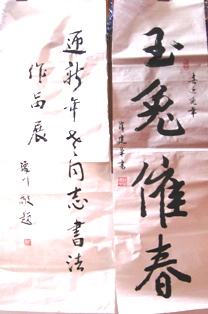 玉兔催春
迎新年老同志書法
作品展